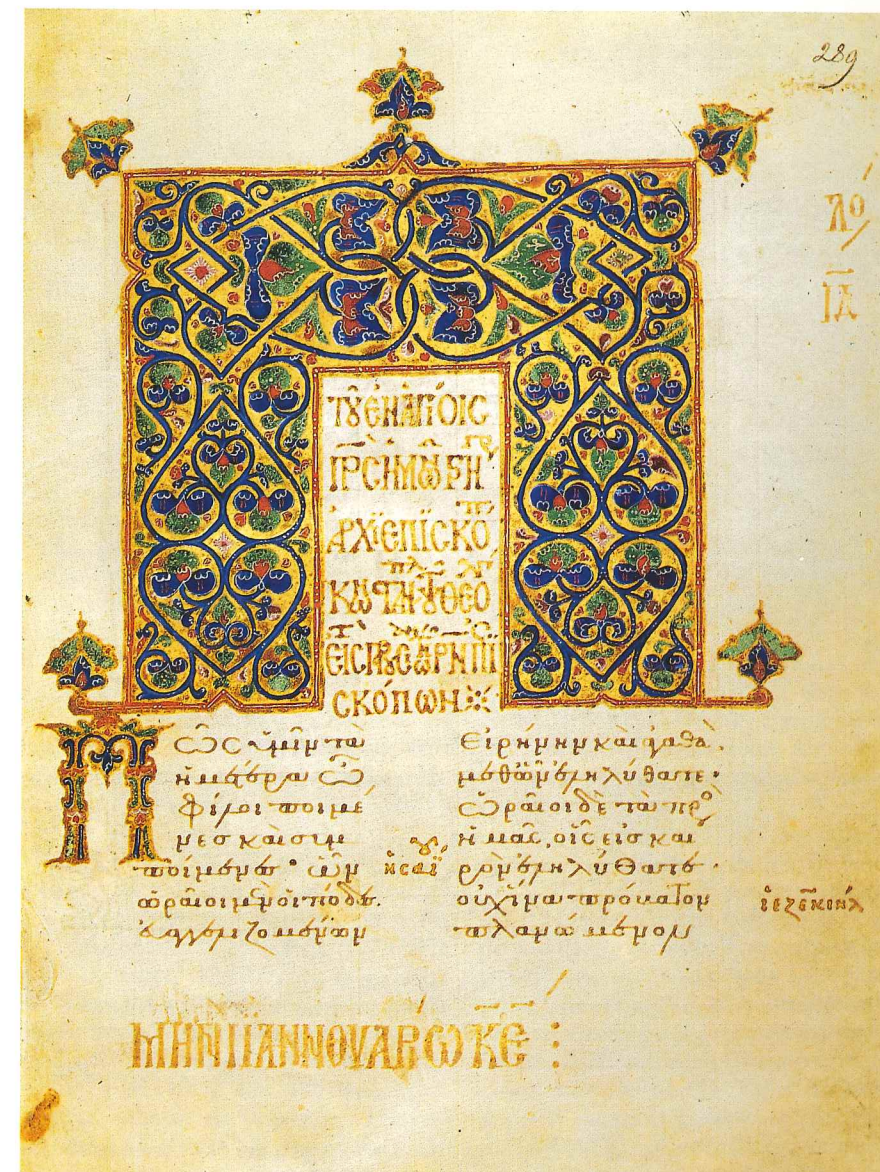 289
ΛΟ΄
ΙΑ
ΤȣȢ ΕΝ ΑΓΙΟΙΣ
ΠΡΣ ΗΜΩΝ ΓΡΗ
ΑΡΧΙΕΠΙΣΚΟΠ
ΣΚΟΠΩΝ
Πῶς ὑμῖν τὰ
ἡμέτερα ὦ
φίλοι ποιμέ
νες καὶ συμ
ποίμενες· ὧν
ὡραῖοι μὲν οἱ πόδες.
εὐαγγελιζομένων
ἡσαΐου
Εἰρήνην καὶ ἀγαθὰ.
μεθ᾽ ὧν ἐληλύθατε·
ὡραῖοι δὲ τὰ πρὸ
ἡμᾶς, οἷς εἰς και
ρὸν ἐληλύθατε·
οὐχ ἵνα πρόβατον
πλανώμενον
ἰεζεκιήλ
ΜΗΝΙ ΙΑΝΝΟΥΑΡΩ ΚΕ: